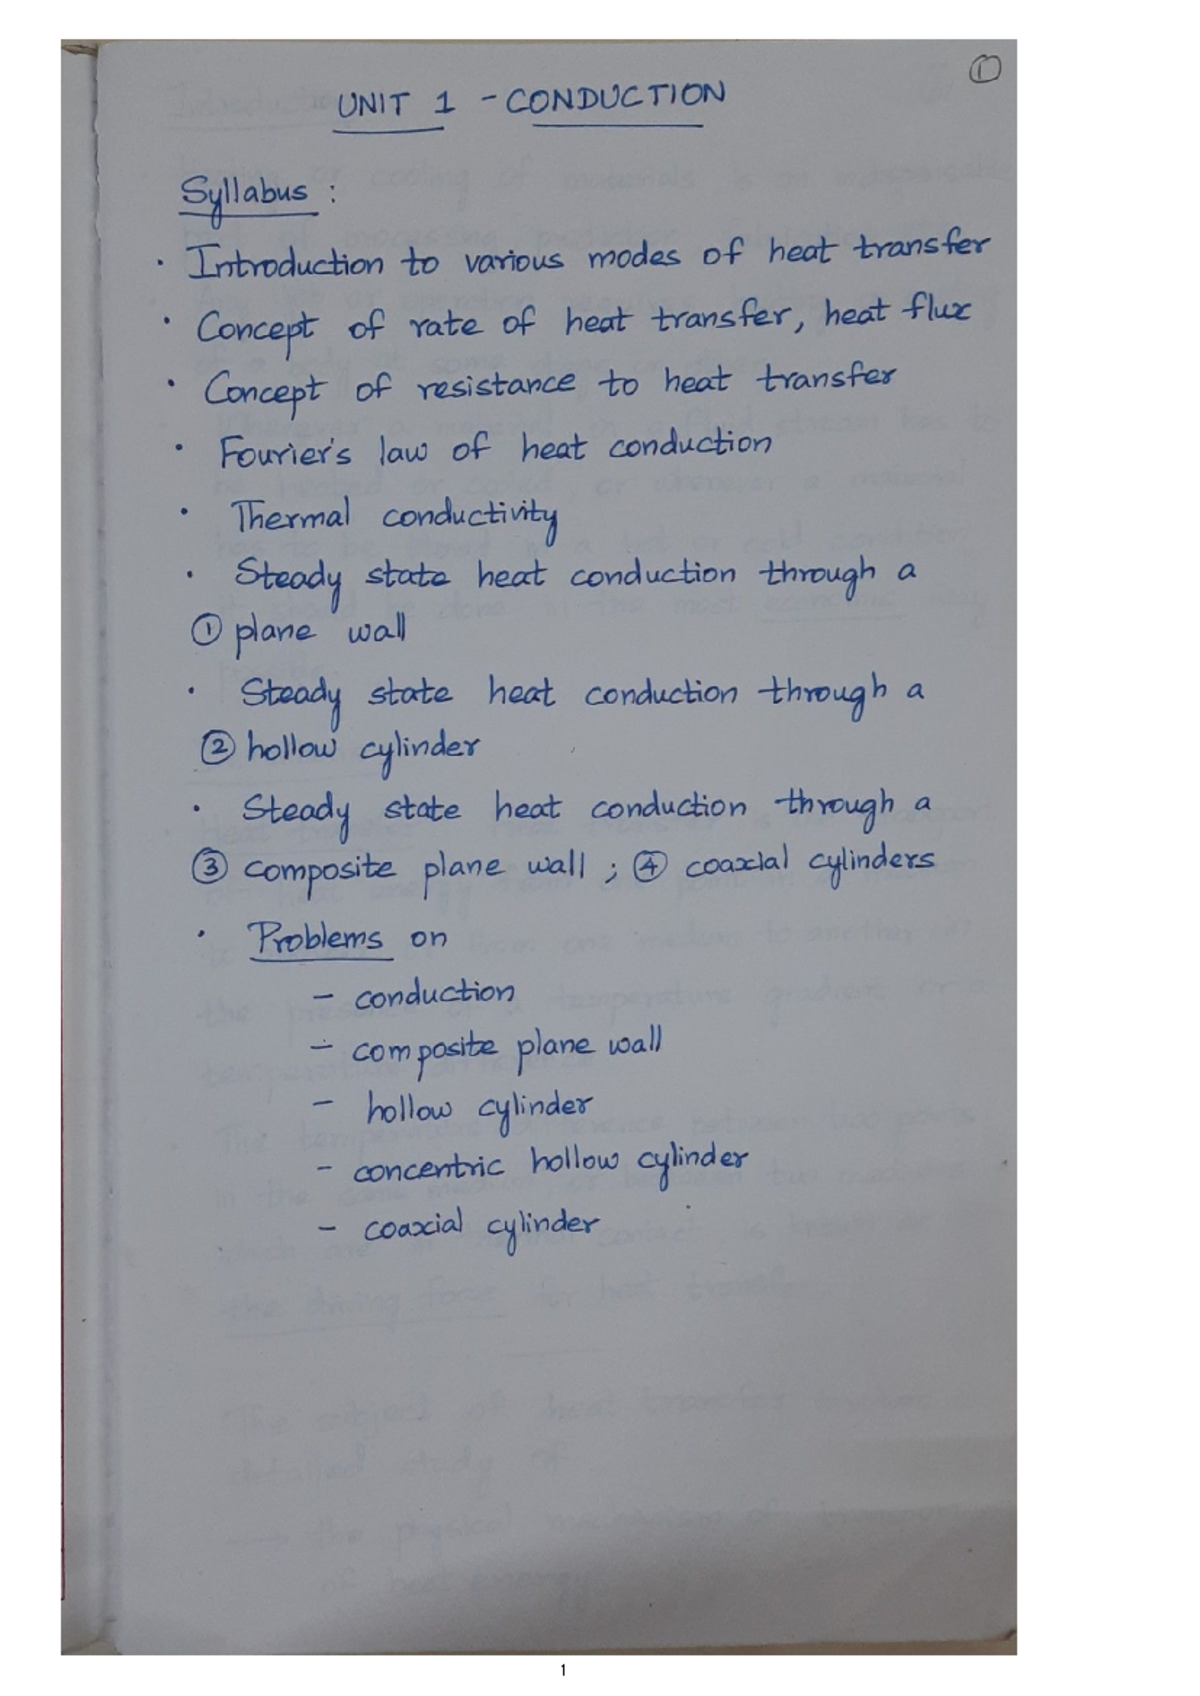 ①
UNIT 1 - CONDUCTION
Syllabus :
· Introduction to various modes of heat transfer
· Concept of rate of heat transfer, heat flux
· Concept of resistance to heat transfer
· Fourier's law of heat conduction
· Thermal conductivity
· Steady state heat conduction through a
① plane wall
· Steady state heat conduction through a
② hollow cylinder
· Steady state heat conduction through a
③ composite plane wall ; ④ coaxial cylinders
· Problems on
- conduction
- composite plane wall
- hollow cylinder
- concentric hollow cylinder
- coaxial cylinder
1